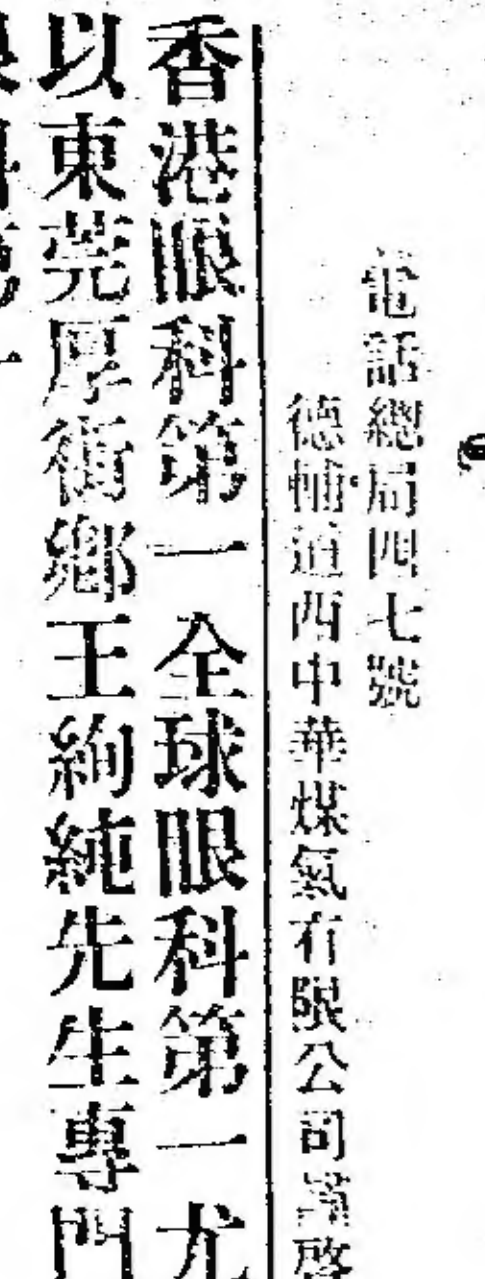 電話總局四七號
德輔道西中華煤氣有限公司謹啓
香港眼科第一全球眼科第一尤
以東莞厚街鄉王絢純先生專門